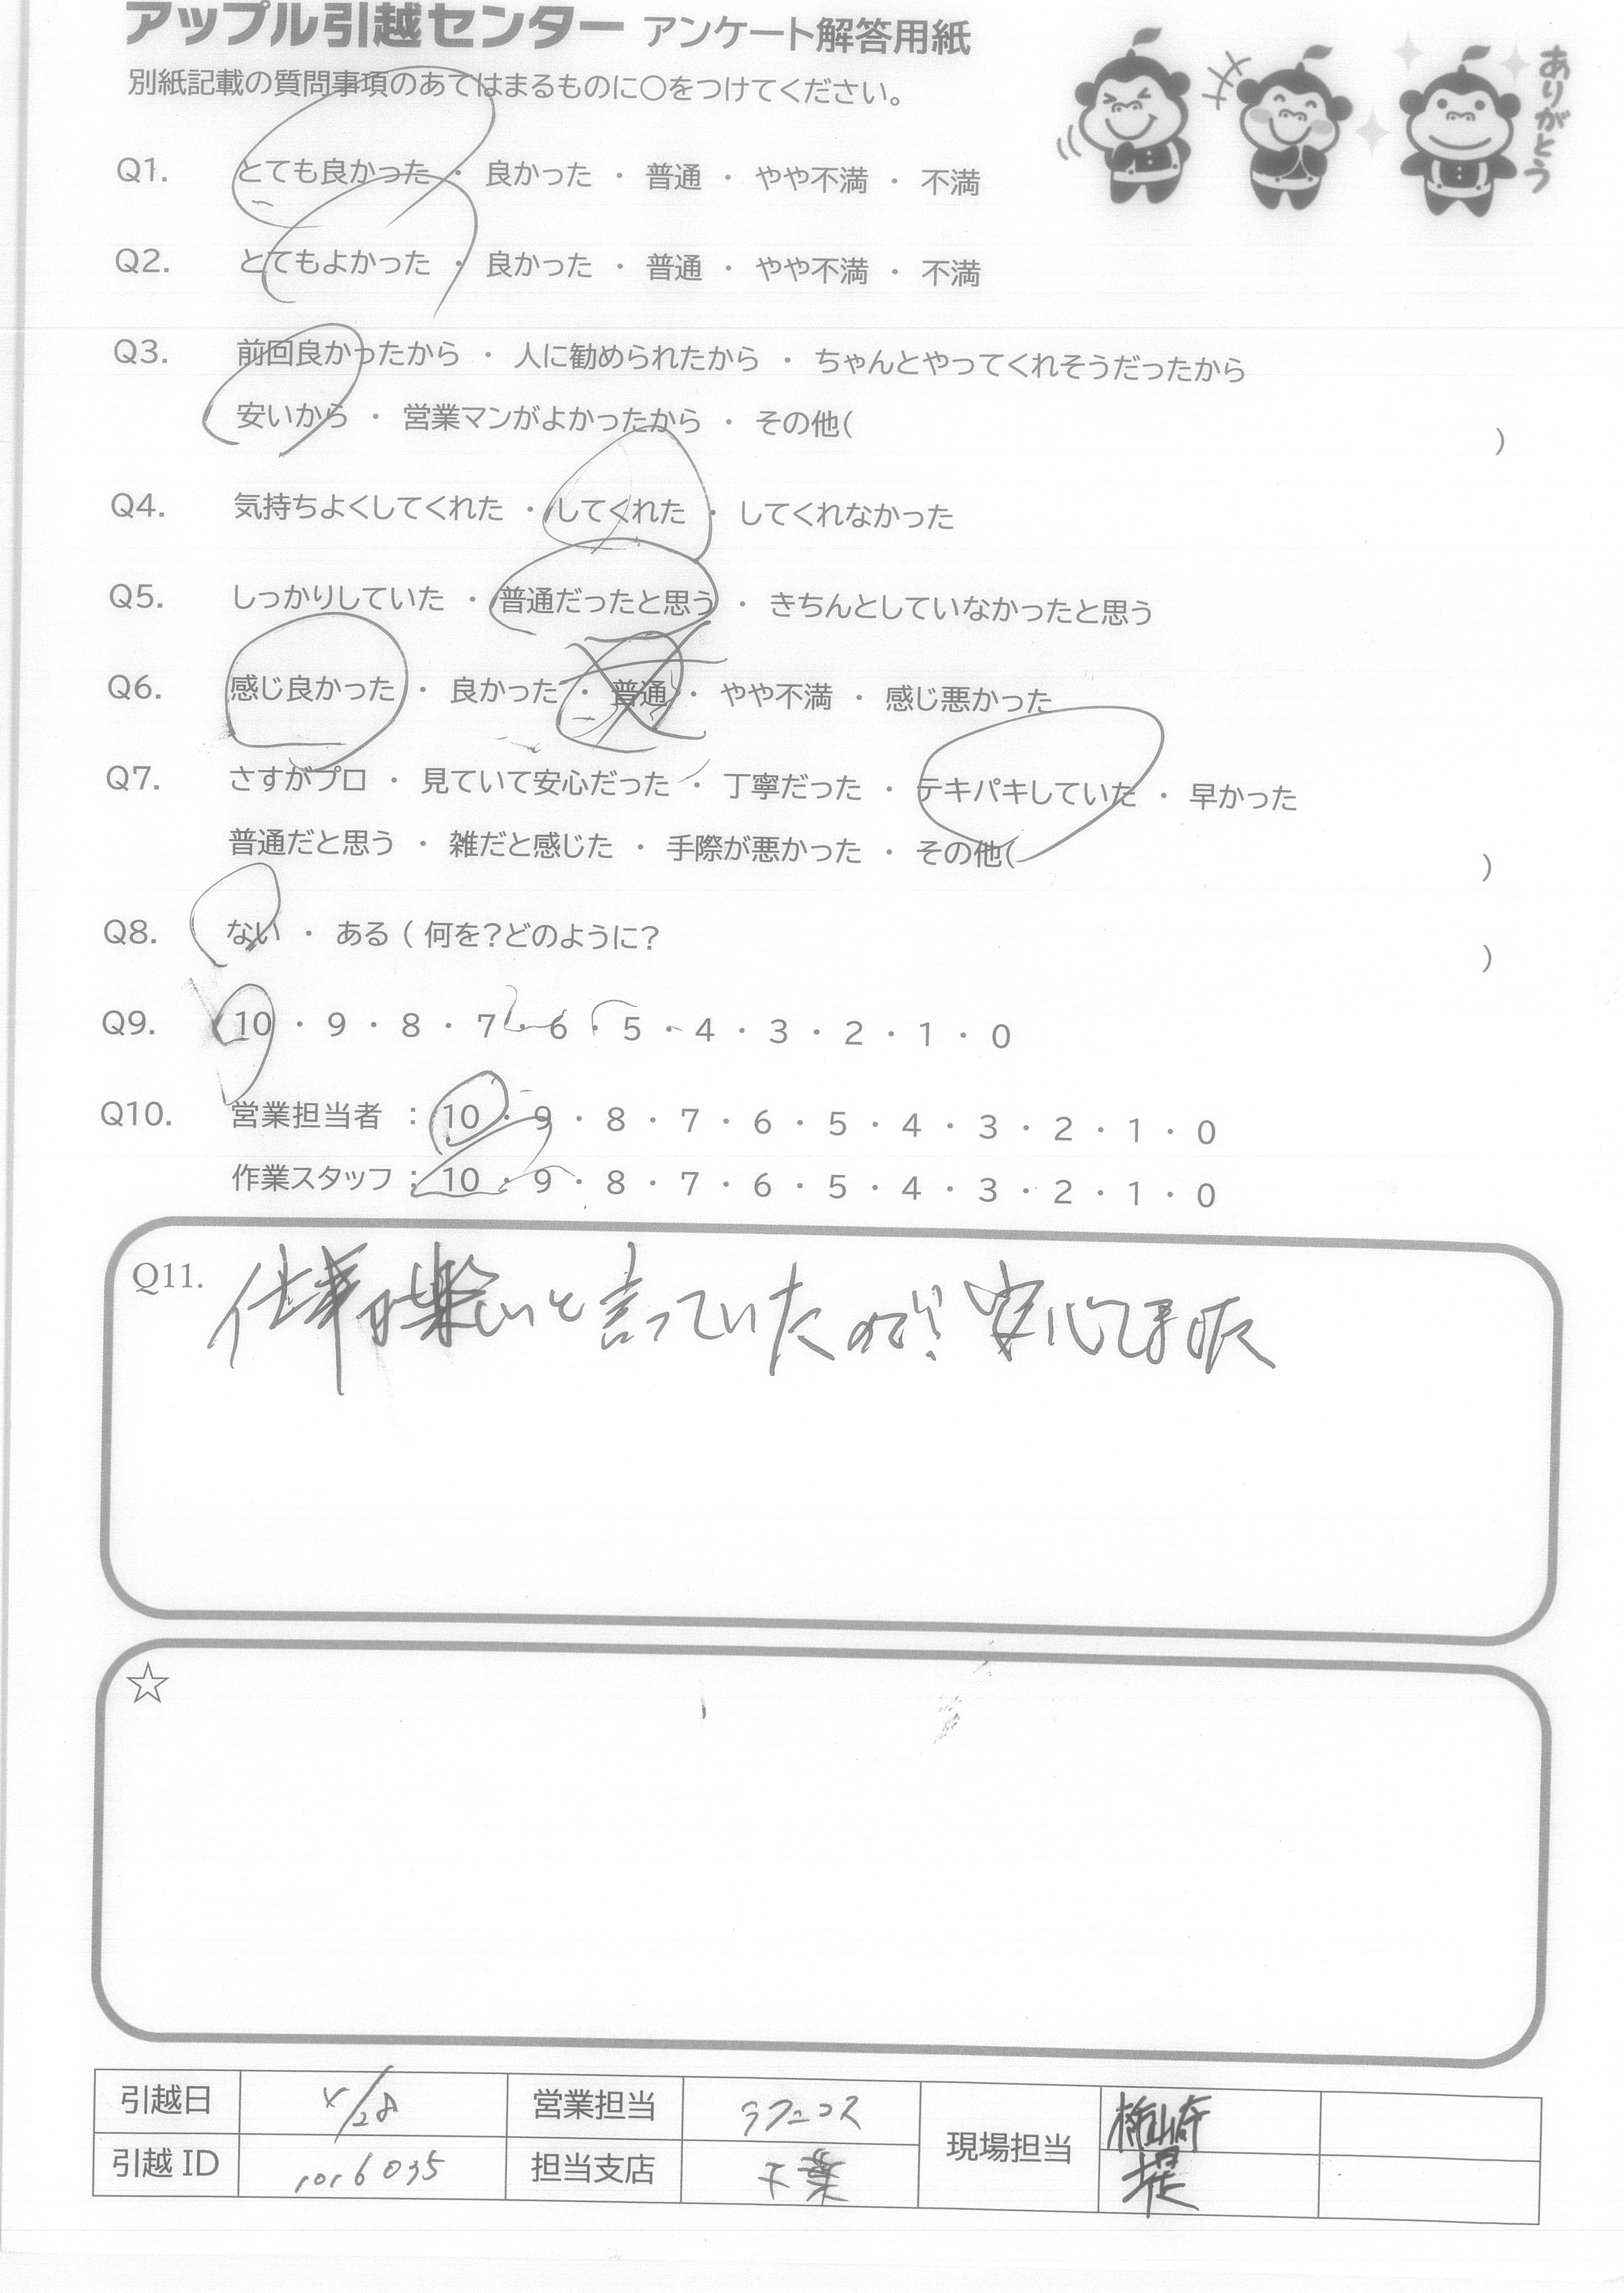 アップル引越センター アンケート解答用紙
別紙記載の質問事項のあてはまるものに〇をつけてください。
ありがとう
Q1. とても良かった ・ 良かった ・ 普通 ・ やや不満 ・ 不満
Q2. とてもよかった ・ 良かった ・ 普通 ・ やや不満 ・ 不満
Q3. 前回良かったから ・ 人に勧められたから ・ ちゃんとやってくれそうだったから
安いから ・ 営業マンがよかったから ・ その他( )
Q4. 気持ちよくしてくれた ・ してくれた ・ してくれなかった
Q5. しっかりしていた ・ 普通だったと思う ・ きちんとしていなかったと思う
Q6. 感じ良かった ・ 良かった ・ 普通 ・ やや不満 ・ 感じ悪かった
Q7. さすがプロ ・ 見ていて安心だった ・ 丁寧だった ・ テキパキしていた ・ 早かった
普通だと思う ・ 雑だと感じた ・ 手際が悪かった ・ その他( )
Q8. ない ・ ある ( 何を?どのように? )
Q9. 10 ・ 9 ・ 8 ・ 7 ・ 6 ・ 5 ・ 4 ・ 3 ・ 2 ・ 1 ・ 0
Q10. 営業担当者 : 10 ・ 9 ・ 8 ・ 7 ・ 6 ・ 5 ・ 4 ・ 3 ・ 2 ・ 1 ・ 0
作業スタッフ : 10 ・ 9 ・ 8 ・ 7 ・ 6 ・ 5 ・ 4 ・ 3 ・ 2 ・ 1 ・ 0
Q11. 仕事楽しいと言っていたので!安心
☆
引越日 営業担当 現場担当
引越 ID 担当支店 千葉 堤